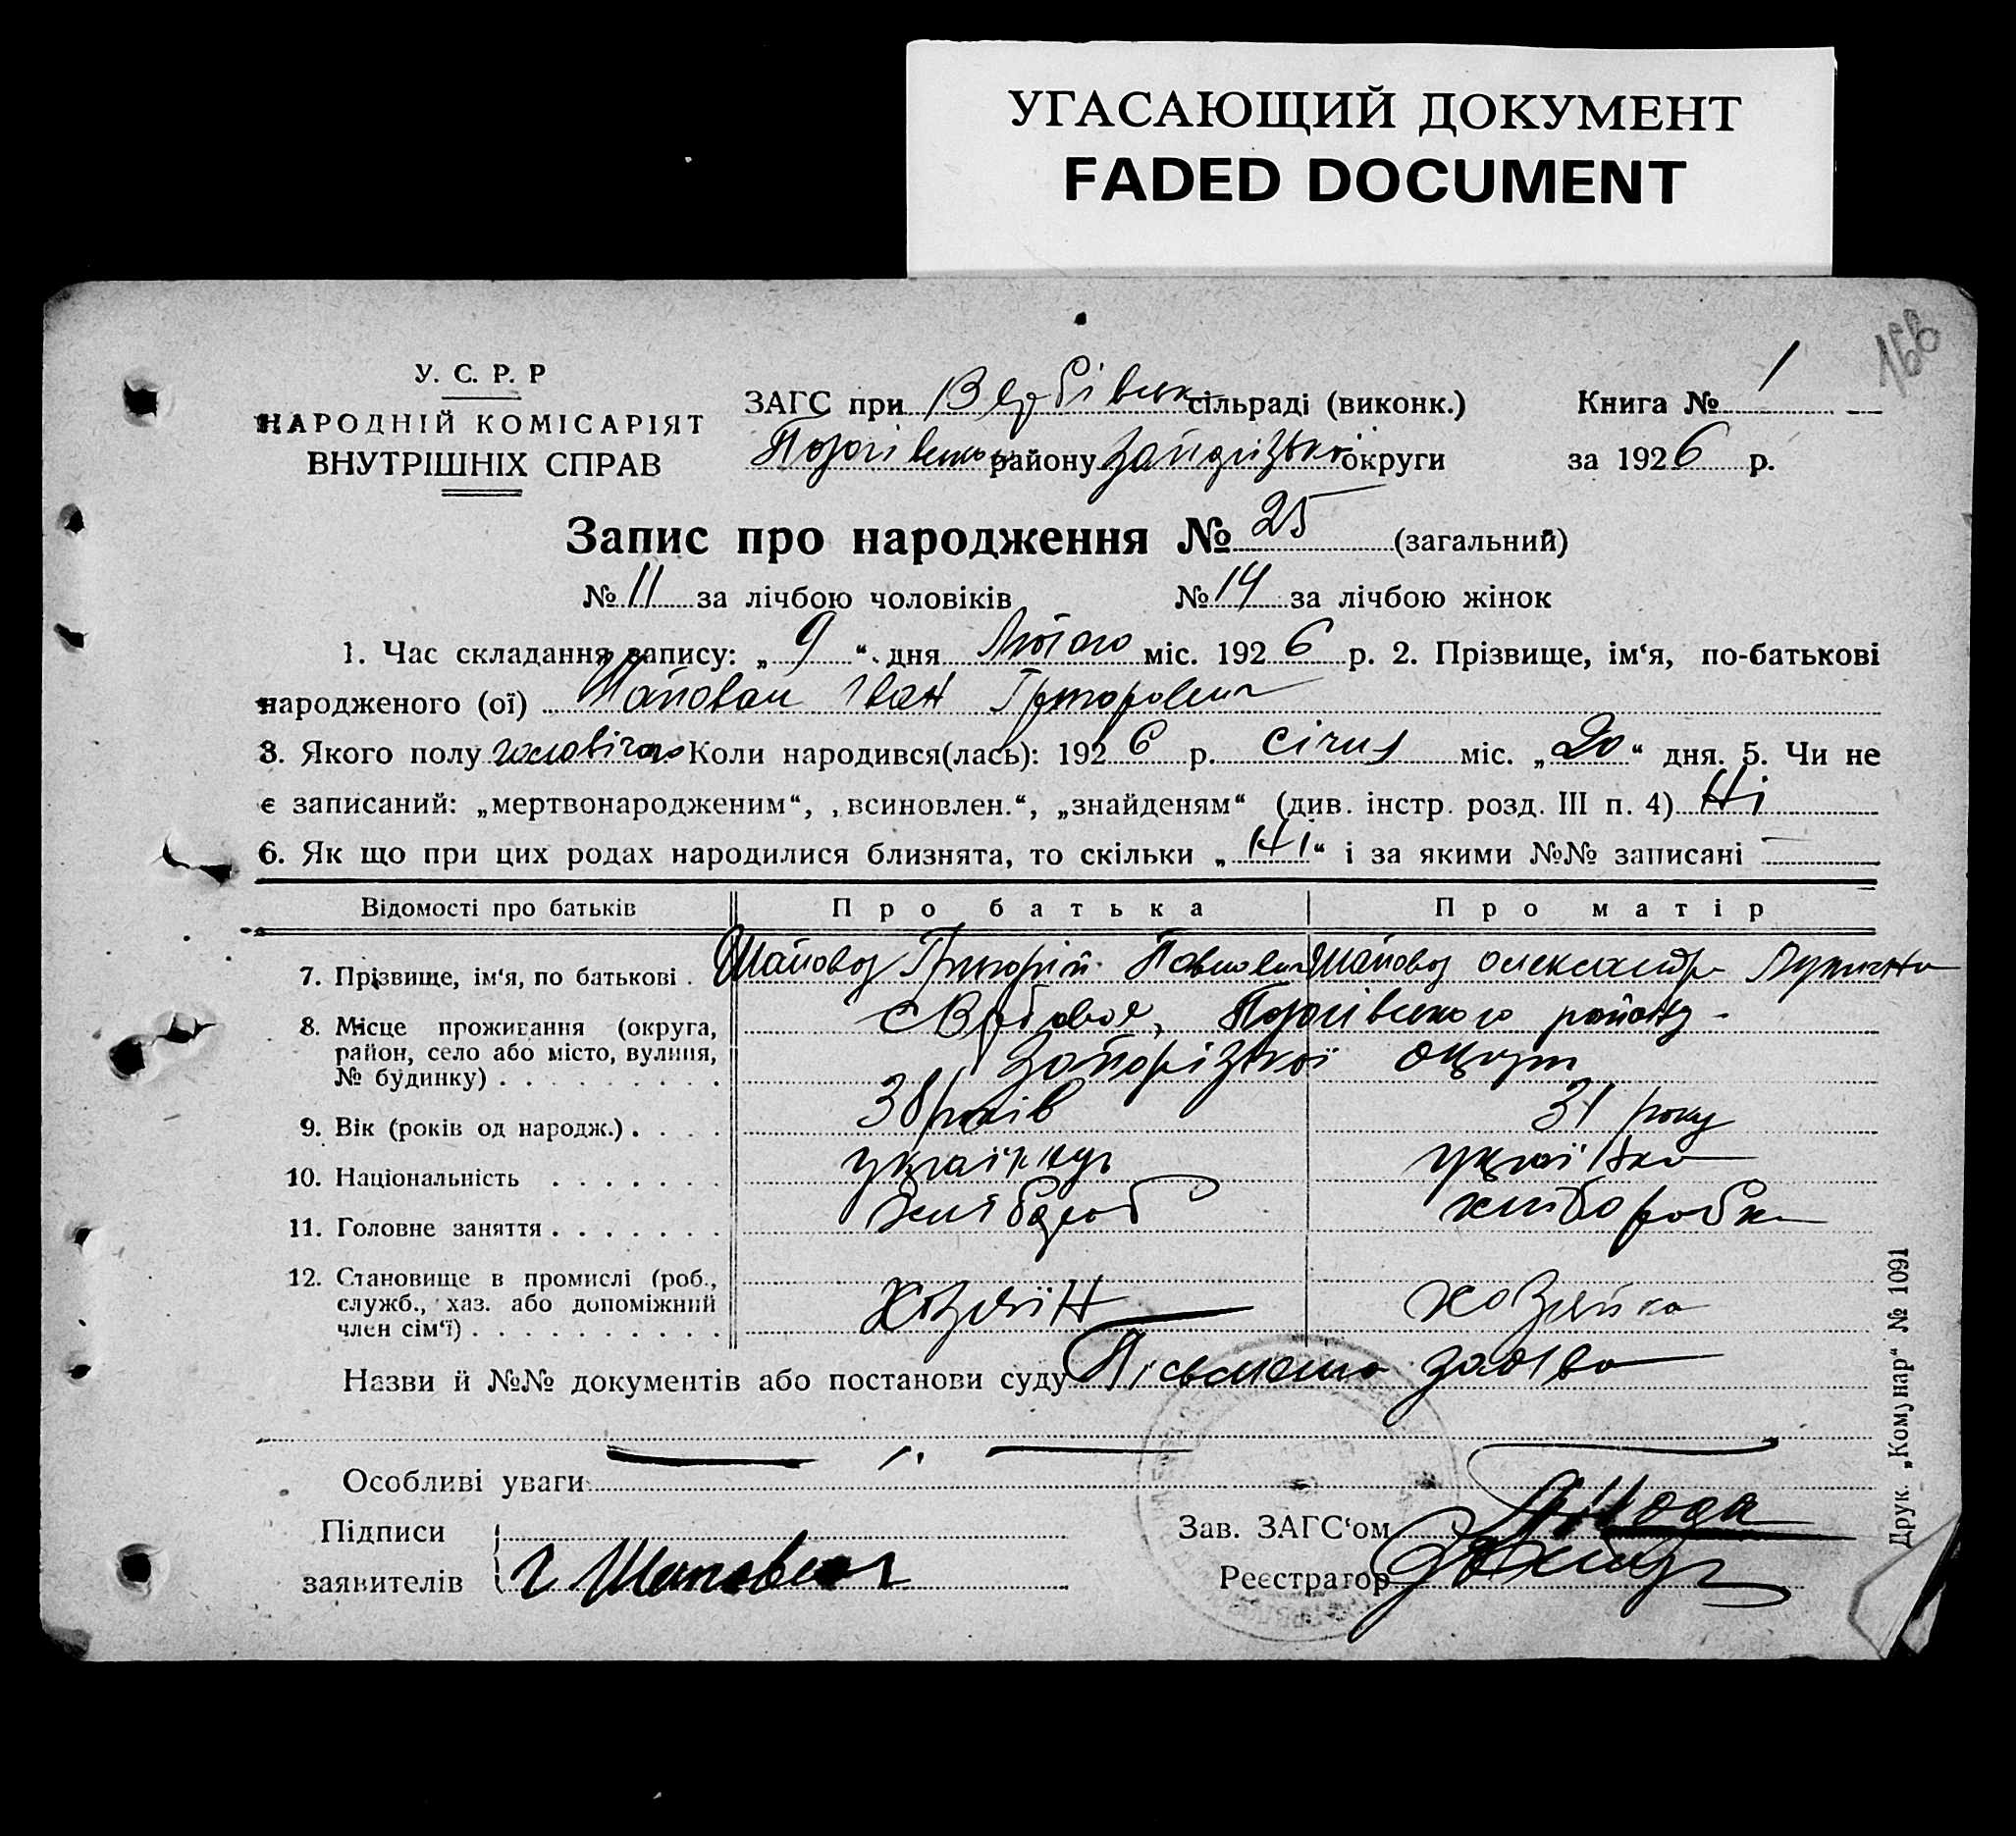 УГАСАЮЩИЙ ДОКУМЕНТ
FADED DOCUMENT
168
У. С. Р. Р
НАРОДНІЙ КОМІСАРІЯТ
ВНУТРІШНІХ СПРАВ
ЗАГС при Вербівськ сільраді (виконк.)
Пологівського району Запорізької округи
Книга № 1
за 1926 р.
Запис про народження № 25 (загальний)
№ 11 за лічбою чоловіків № 14 за лічбою жінок
1. Час складання запису: „ 9 “ дня Лютого міс. 1926 р. 2. Прізвище, ім‘я, по-батькові
народженого (ої) Шаповал Іван Григорович
3. Якого полу чоловічого Коли народився(лась): 1926 р. січня міс. „20“ дня. 5. Чи не
є записаний: „мертвонародженим“, „всиновлен.“, „знайденям“ (див. інстр. розд. III п. 4) Ні
6. Як що при цих родах народилися близнята, то скільки „Ні“ і за якими №№ записані —
Відомості про батьків Про батька Про матір
7. Прізвище, ім‘я, по батькові . Шаповал Григорій Павлович Шаповал Олександра
8. Місце проживання (округа, район, село або місто, вулиця, № будинку) . с Вербове, Пологівського району
Запорізької округи
9. Вік (років од народж.) . 38 років 31 року
10. Національність українець українка
11. Головне заняття . хлібороб хлібороб̶ка
12. Становище в промислі (роб., служб., хаз. або допоміжний член сім‘ї) . хозяїн хозяйка
Назви й №№ документів або постанови суду Письмена заява
Особливі уваги
Підписи
заявителів Г Шаповал
Зав. ЗАГС‘ом
Реєстратор
Друк. „Комунар“ № 1091